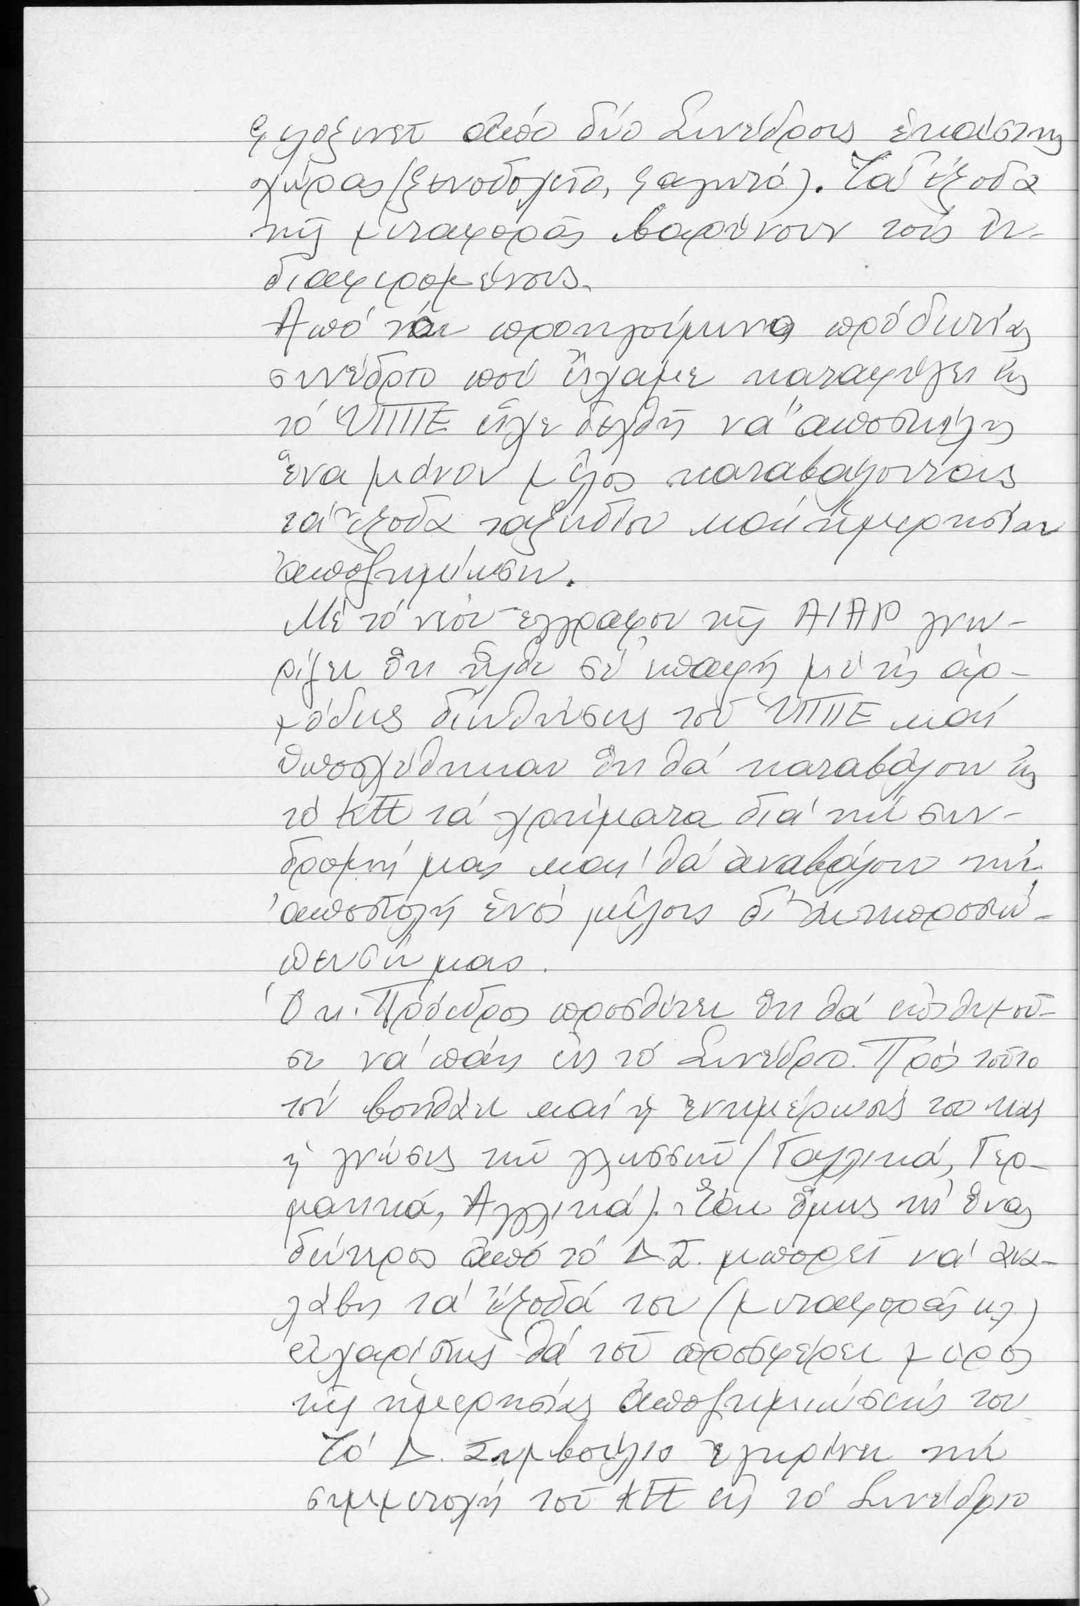 φιλοξενεῖ ἀπό δύο Συνέδρους ἑκάστης
χώρας (ξενοδοχεῖο, φαγητό). Τά ἔξοδα
τῆς μεταφορᾶς βαρύνουν τούς ἐν-
διαφερομένους.
Ἀπό τό προηγούμενο πρό διετίας
συνέδριο πού εἴχαμε καταφύγει εἰς
τό ΥΠΠΕ εἶχε δεχθῆ νά ἀποστείλη
ἕνα μόνον μέλος καταβάλοντας
τά ἔξοδα ταξιδίου καί ἡμερησίαν
ἀποζημίωσιν.
Μέ τό νέον ἔγγραφον τῆς AIAP γνω-
ρίζει ὅτι ἦλθε σέ ἐπαφή μέ τίς ἁρ-
μόδιες διευθύνσεις τοῦ ΥΠΠΕ καί
ὑποσχέθηκαν ὅτι θά καταβάλουν εἰς
τό ΚΕΕ τά χρήματα διά τήν συν-
δρομή μας καί θά ἀναβάλουν τήν
ἀποστολή ἑνός μέλους δι' ἀντιπροσώ-
πευσή μας.
Ὁ κ. Πρόεδρος προσθέτει ὅτι θά ἐπιθυμοῦ-
σε νά πάη εἰς τό Συνέδριο. Πρός τοῦτο
τόν βοηθάει καί ἡ ἐνημέρωσίς του καί
ἡ γνῶσις τῶν γλωσσῶν (Γαλλικά, Γερ-
μανικά, Ἀγγλικά). Ἐάν ὅμως κι' ἕνας
δεύτερος ἀπό τό Δ.Σ. μπορεῖ νά ἀνα-
λάβη τά ἔξοδά του (μεταφορᾶς κλ)
εὐχαρίστως θά τοῦ προσφέρει μέρος
τῆς ἡμερησίας ἀποζημιώσεώς του
Τό Δ. Συμβούλιο ἐγκρίνει τήν
συμμετοχή τοῦ ΚΕΕ εἰς τό Συνέδριο